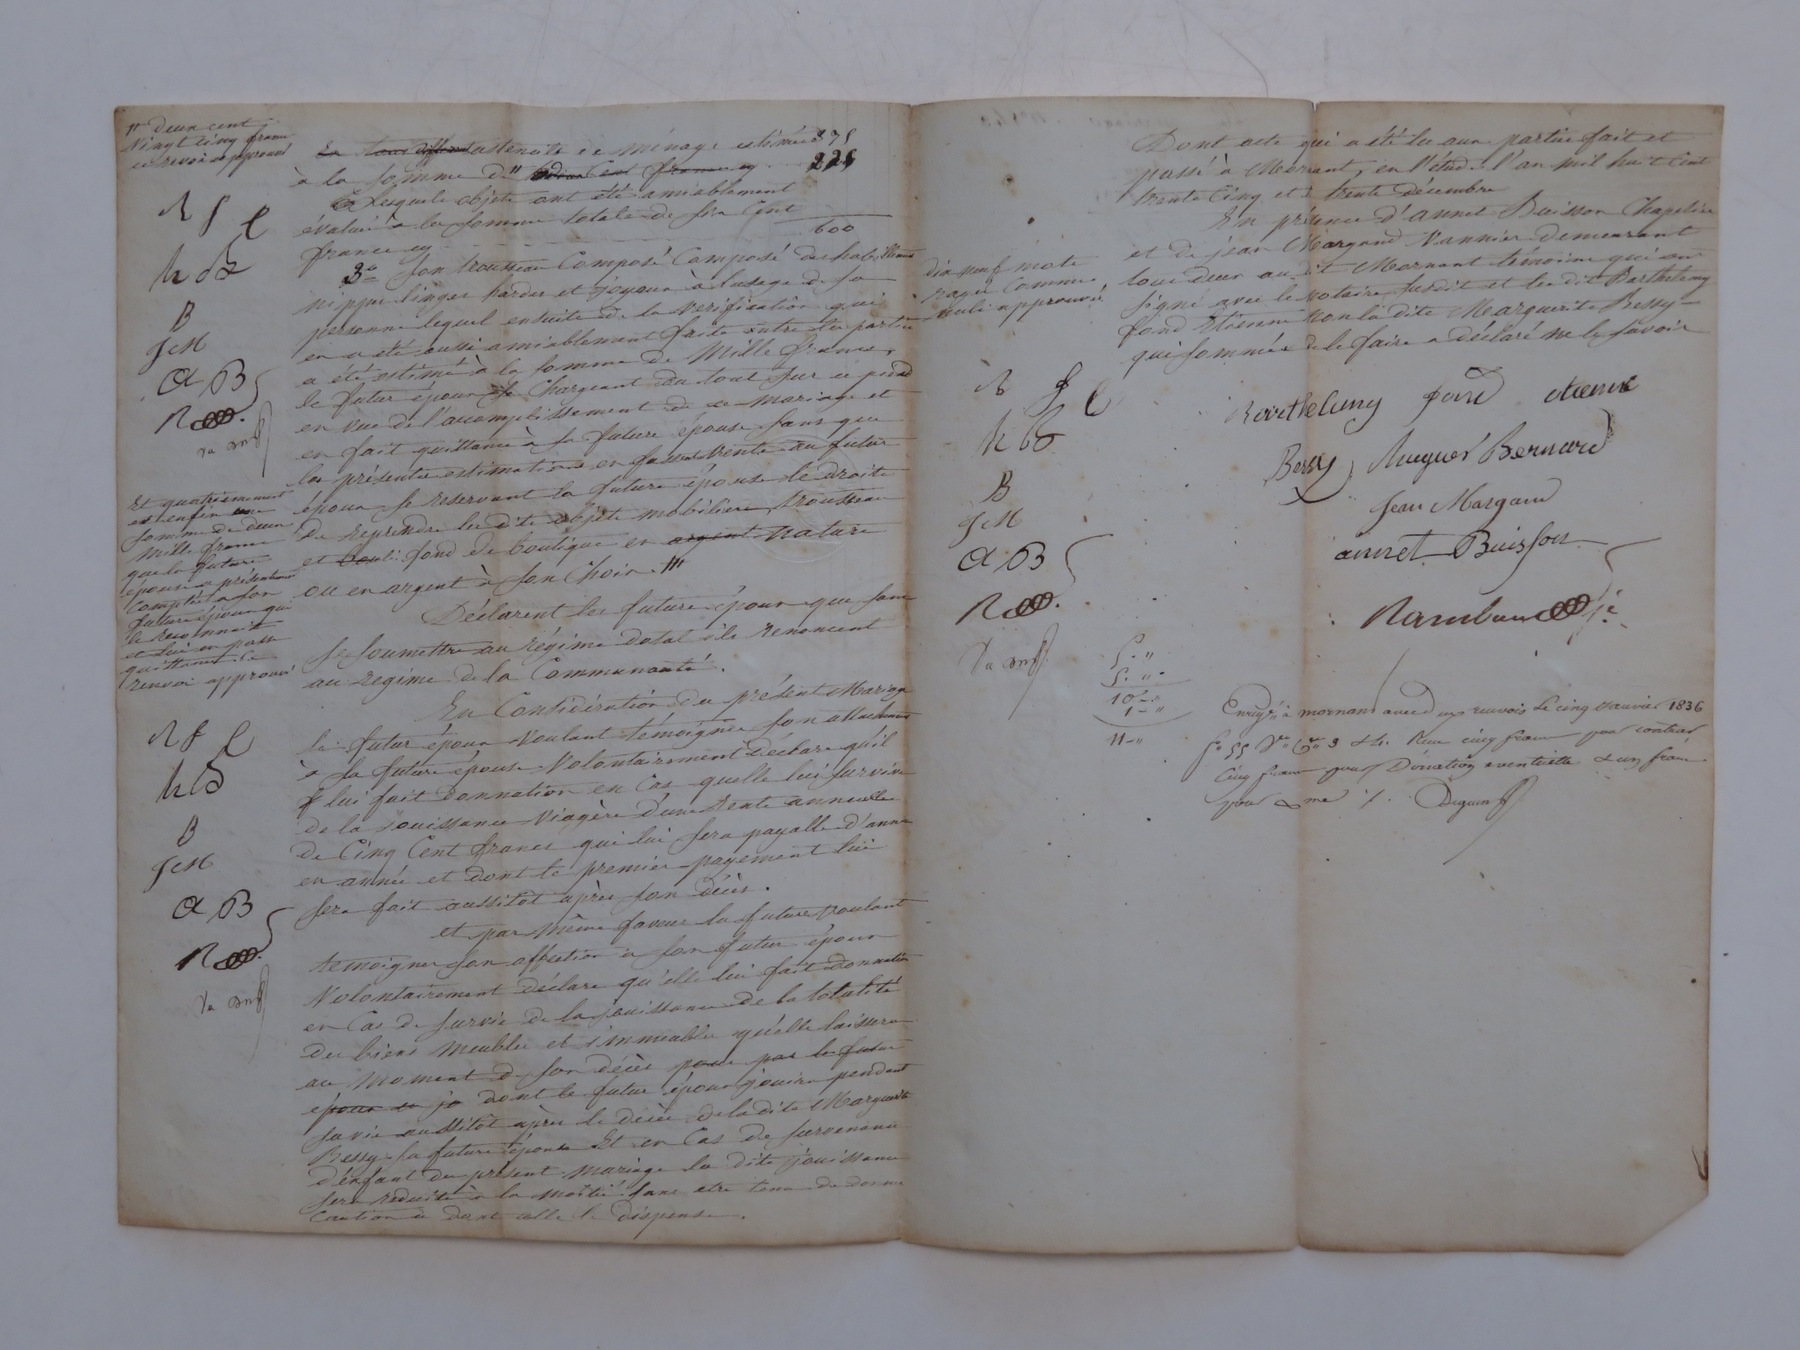 " deux cent
vingt cinq francs
ce renvoi approuvé
R f E
h B
B
J M
A B
R
Vu
Et quatriemement
et enfin une
somme de deux
mille francs
que la future
épouse a présentement
compté à son
futur époux qui
le reconnait
et lui en passe
quittance le
renvoi approuvé
R f E
h B
B
J M
A B
R
Vu
ustensils de ménage estimés 375
à la somme de " deux Cent francs cy 225
Lesquels objets ont été amiablement
évalués à la somme totale de six Cent
francs cy 600
3° Son trousseau Composé Composé des habillements
nippes linges hardes et joyaux à l'usage de sa
personne lequel ensuite de la vérification qui
en a été aussi amiablement faite entre les parties
a été estimé à la somme de Mille francs,
le futur époux se Chargeant du tout sur ce pied
en vue de l'accomplissement de ce mariage et
en fait quittance à sa future épouse sans que
la présente estimation en fasse vente au futur
époux se réservant la future épouse le droit
de reprendre les dits objets mobiliers trousseau
et fond de boutique en argent nature
ou en argent à son choix.
Déclarent les futurs époux que sans
se soumettre au régime dotal ils renoncent
au régime de la Communauté.
En Considération du présent Mariage
le futur époux voulant témoigner son attachement
à sa future épouse volontairement déclare qu'il
lui fait donnation en Cas quelle lui survive
de la jouissance viagère d'une rente annuelle
de Cinq Cent francs qui lui sera payable d'année
en année et dont le premier payement lui
sera fait aussitôt après son décès.
et par même faveur la future voulant
témoigner son affection à son futur époux
Volontairement déclare qu'elle lui fait donnation
en Cas de survie de la jouissance de la totalité
des biens meubles et immeubles qu'elle laissera
au moment de son décès pour par le futur
époux en jo dont le futur époux jouira pendant
sa vie aussitôt après le décès de la dite Marguerite
Bessy la future épouse Et en Cas de survenance
d'enfant du présent mariage la dite jouissance
sera réduite à la moitié sans etre tenu de donner
Caution ce dont elle le dispense.
dix neuf mots
rayés comme
nuls approuvés
R f E
h B
B
J M
A B
R
Vu
Dont acte qui a été lu aux parties fait et
passé à Mornant, en l'étude l'an mil huit Cent
trente Cinq et le trente décembre
En présence d'annet Buisson Chapelier
et de jean Margand Vannier demeurant
tous deux au dit Mornant témoins qui ont
signé avec le notaire susdit et les dits Barthelemy
fond Etienne non la dite Marguerite Bessy
qui sommée de le faire a déclaré ne le savoir
Barthelemy fond etienne
Bessy Bernard
Jean Margand
annet Buisson
5 "
5 "
10 "
1 "
11 "
Enregistré à mornant avec deux renvois Le cinq janvier 1836
f° 55 V° C° 3 &4. Reçu cinq francs pour contrat
Cinq francs pour Donation eventuelle & un franc
pour